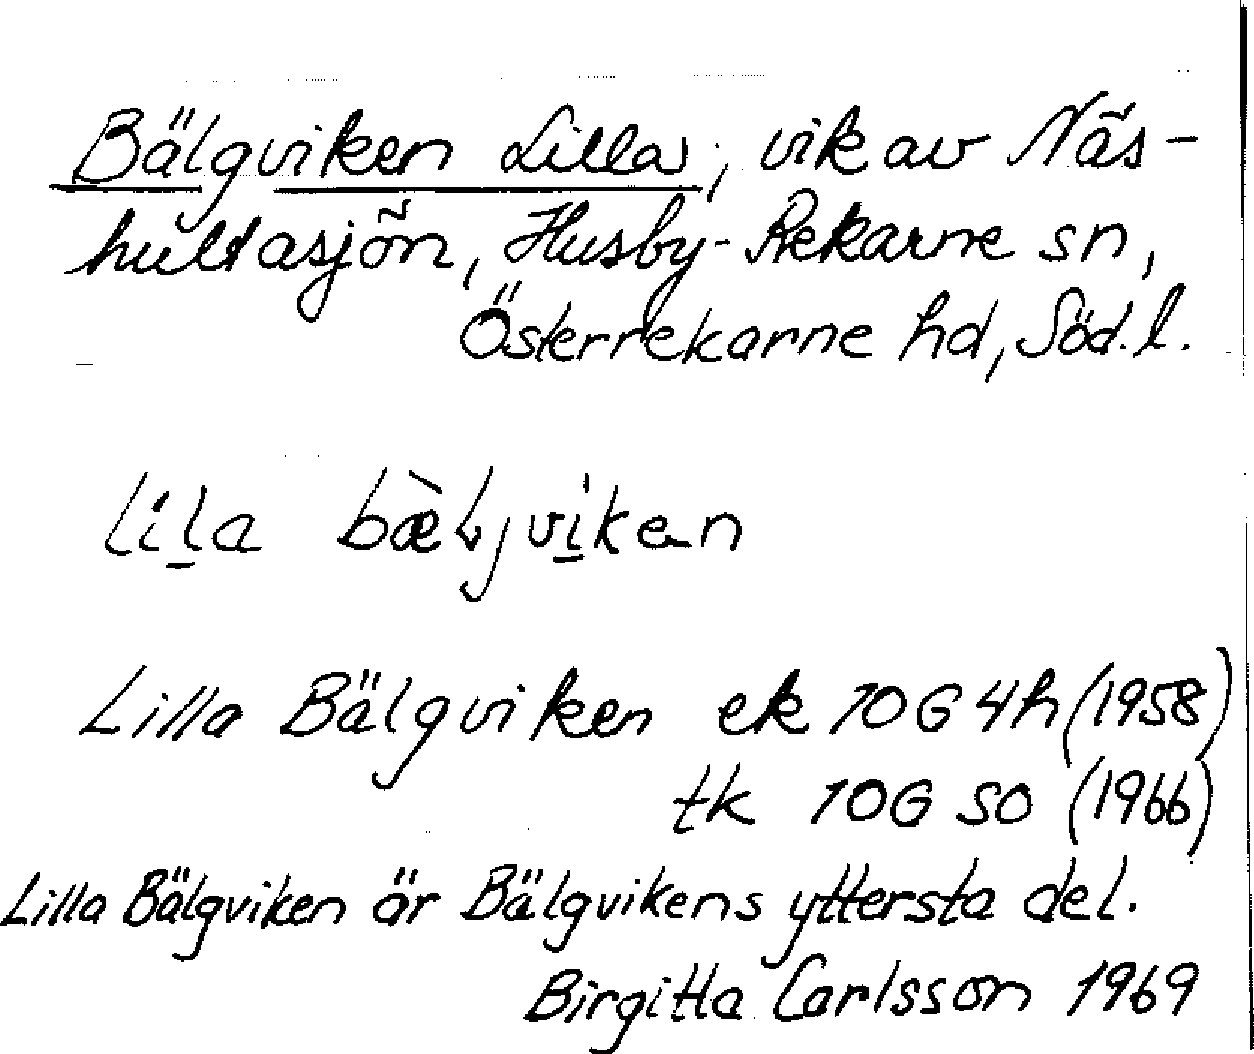 Bälgviken Lilla, vik av Näs-
hultasjön, Husby-Rekarne sn,
Österrekarne hd, Söd. l.
lịla bæ̀ljvịken
Lilla Bälgviken ek 10G4h (1958)
tk 10G SO (1966)
Lilla Bälgviken är Bälgvikens yttersta del.
Birgitta Carlsson 1969